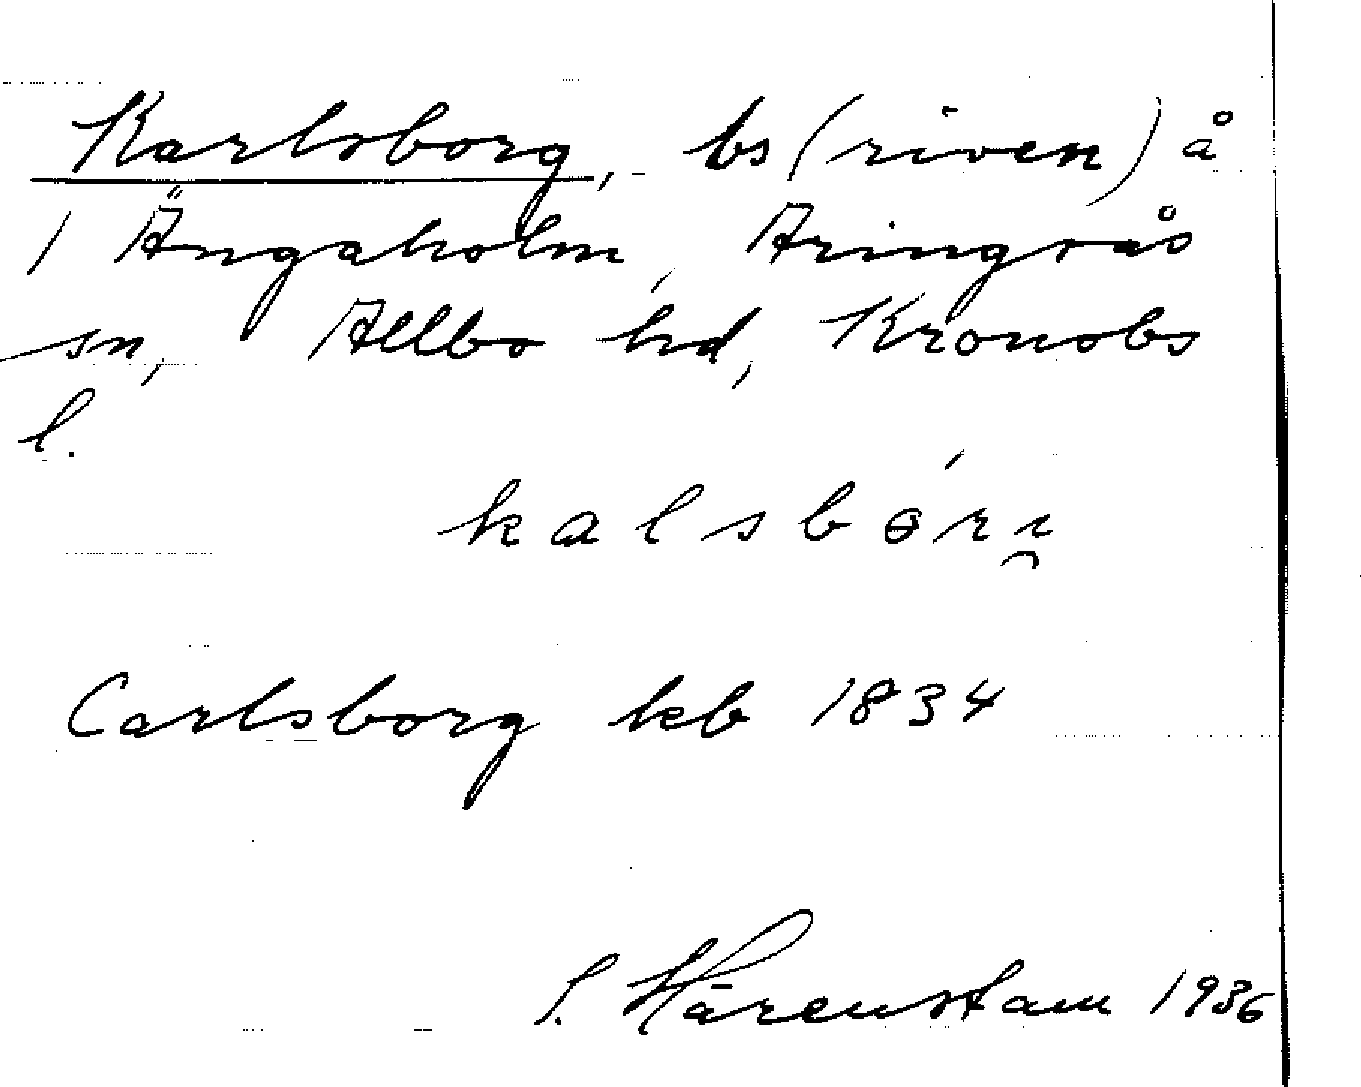 Karlsborg, bs (riven) å
1 Ängaholm, Aringsås
sn, Allbo hd, Kronobs
l.
kalsbɵ́rı̯
Carlsborg kb 1834
S. Härenstam 1936